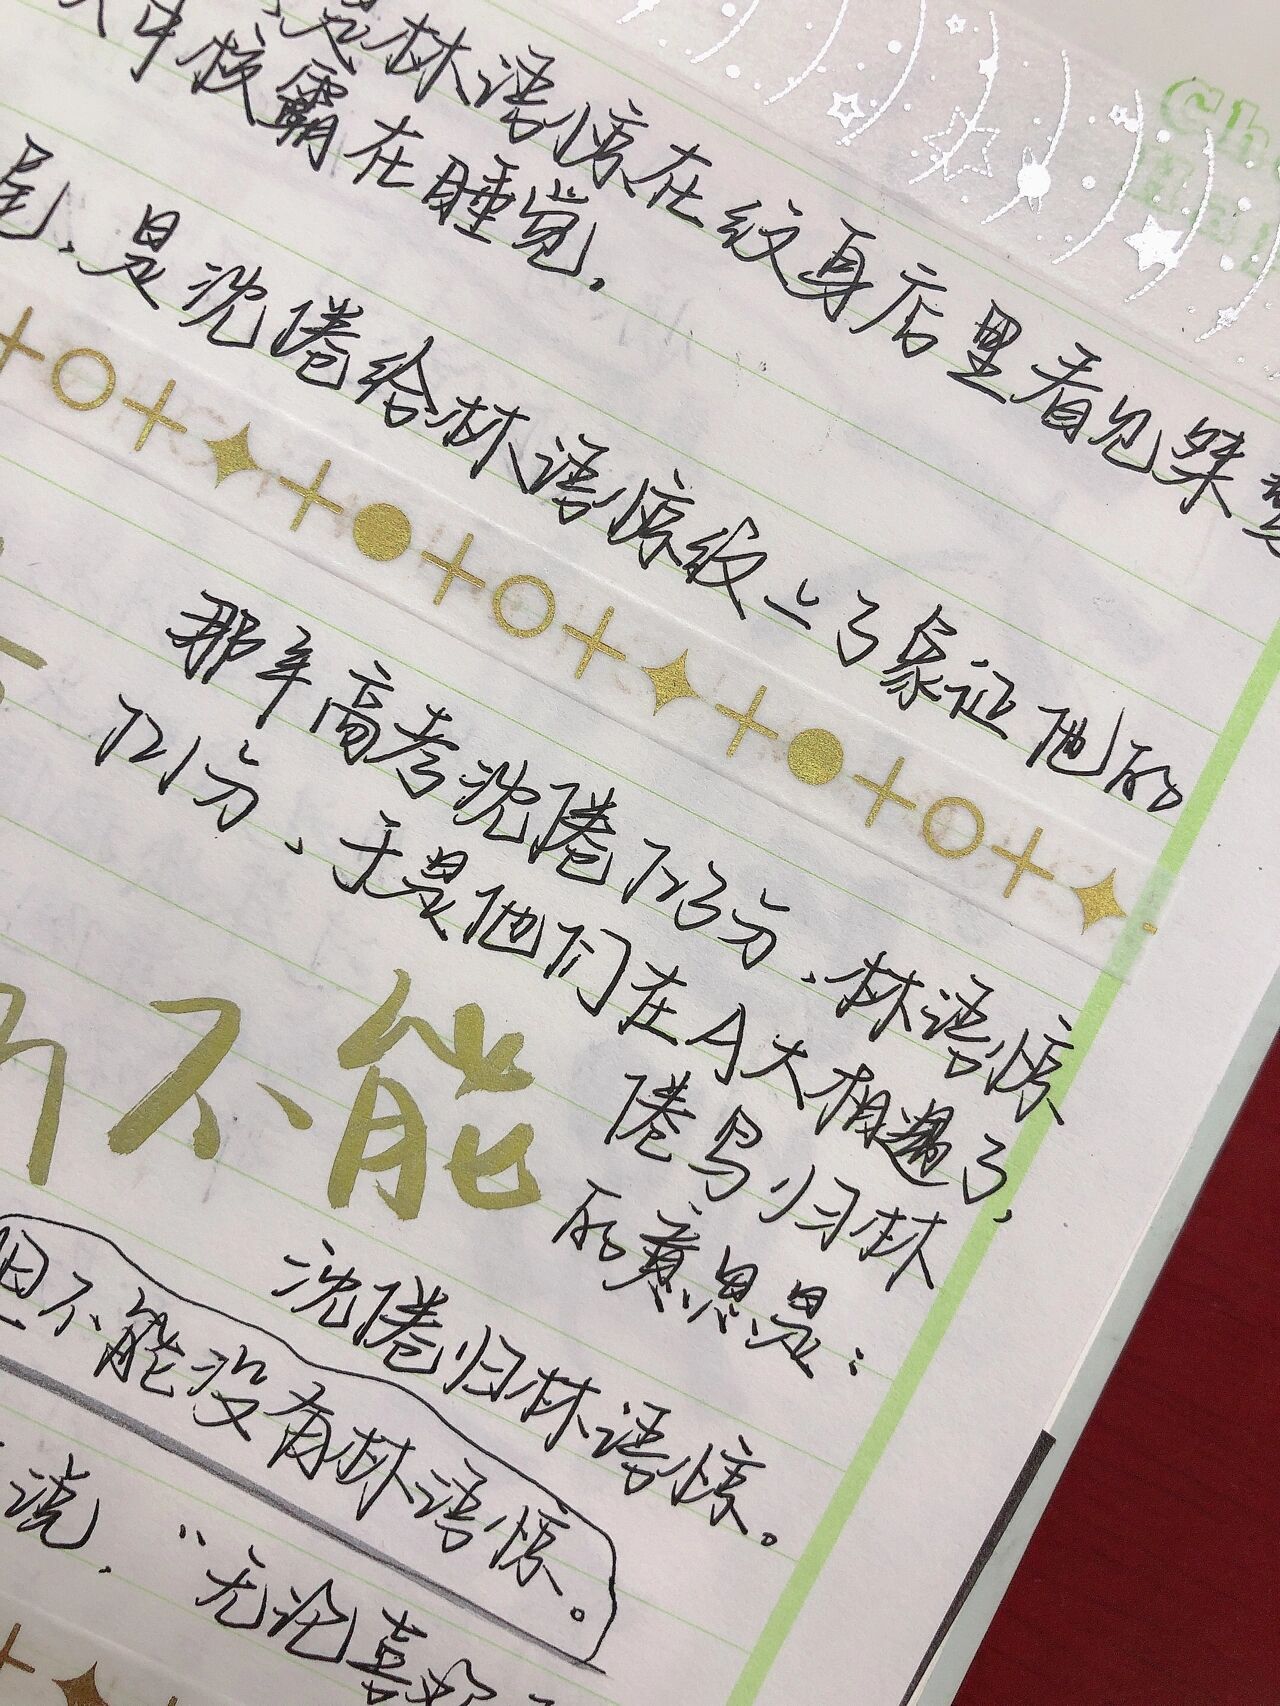 是林语惊在纹身店里看见桀
中校霸在睡觉.
尾、是沈倦给林语惊纹上了象证他的
那年高考沈倦723分、林语惊
721分、于是他们在A大相遇了,
倦鸟归林
的意思是：
不能
沈倦归林语惊。
因不能没有林语惊。
说，“无论喜
Ch